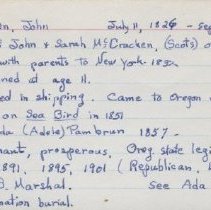 en, John July 11, 1826 - Se
f John & Sarah McCracken, (Scots) o
with parents To New York 183
ned at age 11.
ed in shipping. Came to Oregon
on Sea Bird in 1851
da (Adele) Pambrun 1857-
ant, prosperous, Oreg. state legi
891, 1895, 1901 (Republican,
S. Marshal. See Ada
mation burial.